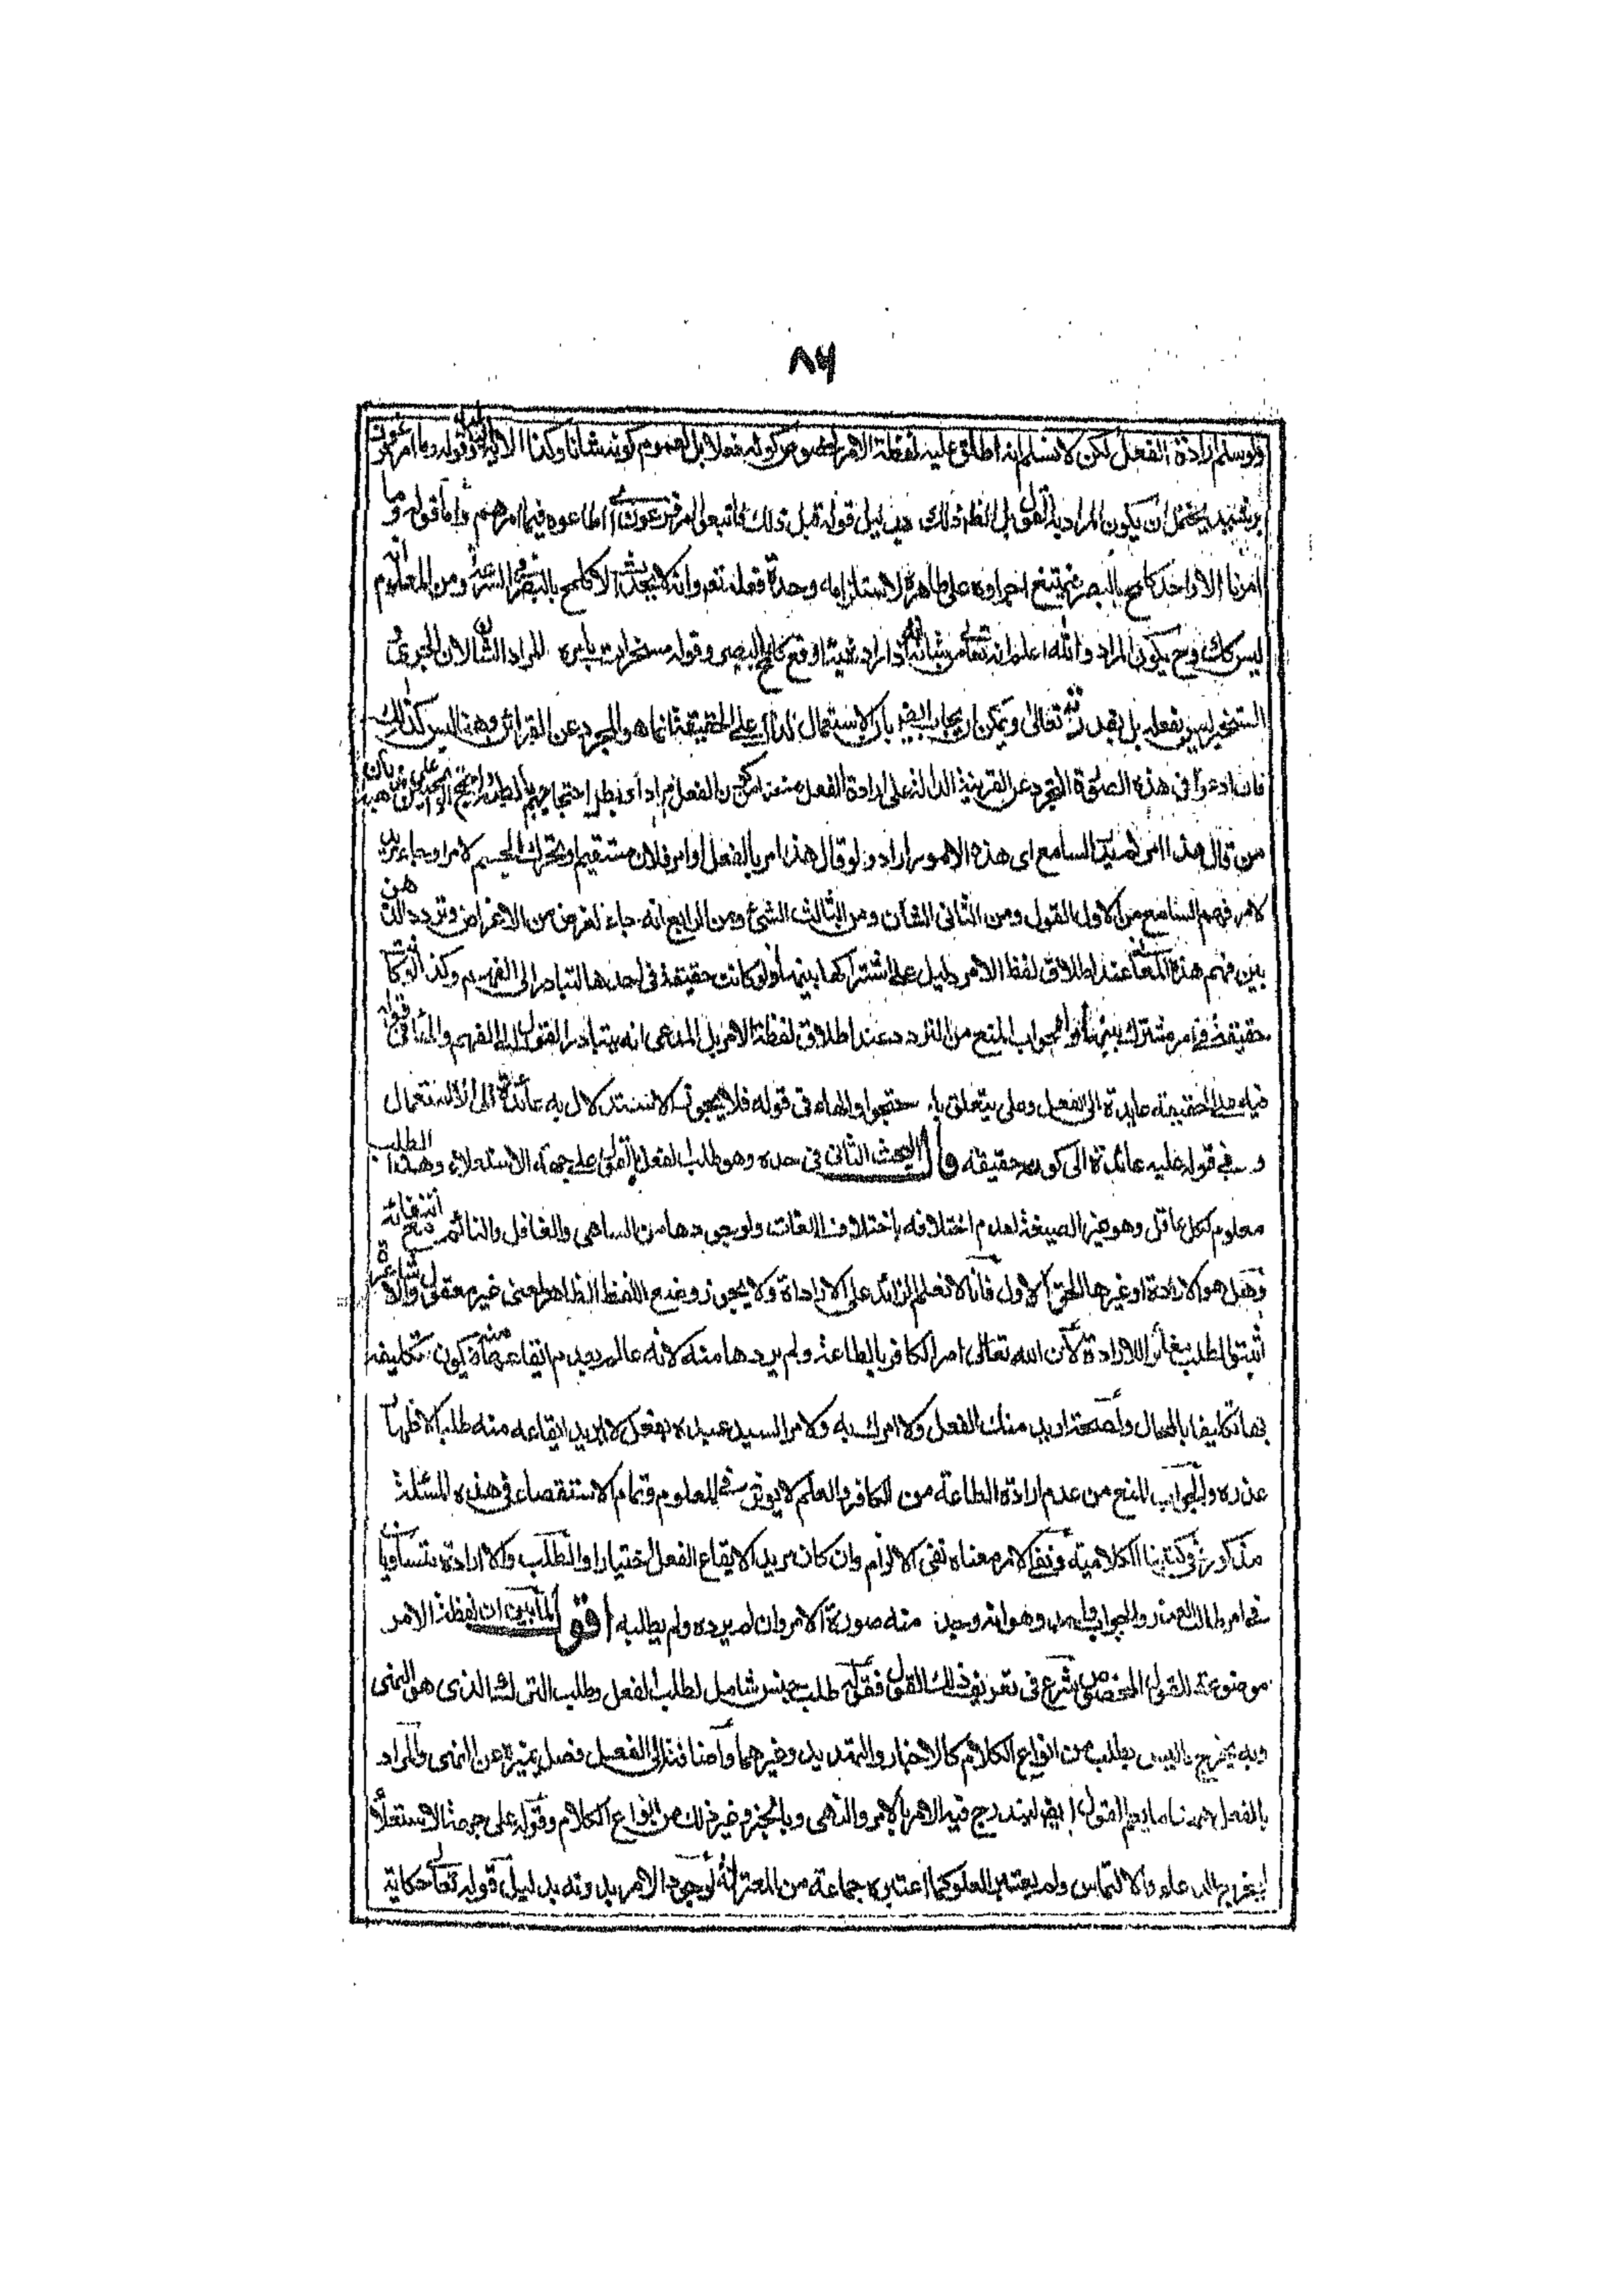 ٨٦
ولو سلم ارادة الفعل لكن لا نسلم انه اطلق عليه لفظة الامر لخصوص كونه فعلا بل لعموم كونه شانا وكذا الاية وقوله وما امر فرعون
برشيد يحتمل ان يكون المراد به القول بل الظاهر ذلك بدليل قوله قبل ذلك فاتبعوا امر فرعون اى اطاعوه فيما امرهم واما قوله وما
امرنا الا واحدة كلمح بالبصر فيمتنع اجراؤه على ظاهره لاستلزامه وحدة فعله تعم وانه لا يحدث الا كلمح بالبصر فى السرعة ومن المعلوم انه
ليس كك وح يكون المراد والله اعلم انه تعالى من شانه انه اذا اراد شيئا وقع كلمح البصر وقوله مسخرات بامره المراد الشان لان الجرى و
التسخير ليس بفعله بل بقدرته تعالى ويمكن ان يجاب ايضا بان الاستعمال الدال على الحقيقة انما هو المجرد عن القرائن وهنا ليس كذلك
فان ادعوا فى هذه الصورة التجرد عن القرينة الدالة على ارادة الفعل منعنا من كون الفعل مرادا
من قال هذا امر لم يدر السامع اى هذه الامور اراد ولو قال هذا امر بالفعل او امر فلان مستقيم او تحرك الجسم لامر او جاء زيد
لامر فهم السامع من الاول القول ومن الثانى الشان ومن الثالث الشئ ومن الرابع انه جاء لغرض من الاغراض وتردد الذهن
بين فهم هذه المعانى عند اطلاق لفظ الامر دليل على اشتراكها بينها ولو كانت حقيقة فى احدها لتبادر الى الفهم وكذا لو كانت
حقيقة فى امر مشترك بينها والجواب المنع من التردد عند اطلاق لفظة الامر بل المدعى انه يتبادر القول الى الفهم والهاء فى قوله
فيه على الحقيقة عايدة الى الفعل وعلى يتعلق باحتجوا والهاء فى قوله فلا يجوز الاستدلال به عائدة الى الاستعمال
وفى قوله عليه عائدة الى كونه حقيقة قال البحث الثانى فى حده وهو طلب الفعل بالقول على جهة الاستعلاء وهذا الطلب
معلوم لكل عاقل وهو غير الصيغة لعدم اختلافه باختلاف اللغات ولوجودها من الساهى والغافل والنائم مع انتفائه
وهل هو الارادة او غيرها الحق الاول فانا لا نعلم الزائد على الارادة ولا يجوز وضع اللفظ الظاهر لمعنى غير معقول والاشاعرة
اثبتوا الطلب مغائرا للارادة لان الله تعالى امر الكافر بالطاعة ولم يردها منه لانه عالم بعدم ايقاعها منه فيكون تكليفه
بها تكليفا بالمحال ولصحة اريد منك الفعل ولا امرك به ولامر السيد عبده بفعل لا يريد ايقاعه منه طلبا لاظهار
عذره والجواب المنع من عدم ارادة الطاعة من الكافر والعلم لا يوثر فى المعلوم وتمام الاستقصاء فى هذه المسئلة
مذكور فى كتبنا الكلامية ونفى الامر معناه نفى الالزام وان كان مريدا لايقاع الفعل اختيارا والطلب والارادة متساويان
فى امر طالب العذر والجواب واحد وهو انه وجد منه صورة الامر وان لم يرده ولم يطلبه اقول لما بين ان لفظة الامر
موضوعة للقول المخصوص شرع فى تعريف ذلك القول فقوله طلب جنس شامل لطلب الفعل وطلب الترك الذى هو النهى
وبه يخرج ما ليس بطلب من انواع الكلام كالاخبار والتهديد وغيرهما واضافته الى الفعل فصل يميزه عن النهى والمراد
بالفعل ههنا ما يعم القول ايضا ليندرج فيه الامر بالامر والنهى وبالخبر وغير ذلك من انواع الكلام وقوله على جهة الاستعلاء
ليخرج الدعاء والالتماس ولم يعتبر العلو كما اعتبره جماعة من المعتزلة لوجود الامر بدونه بدليل قوله تعالى حكاية